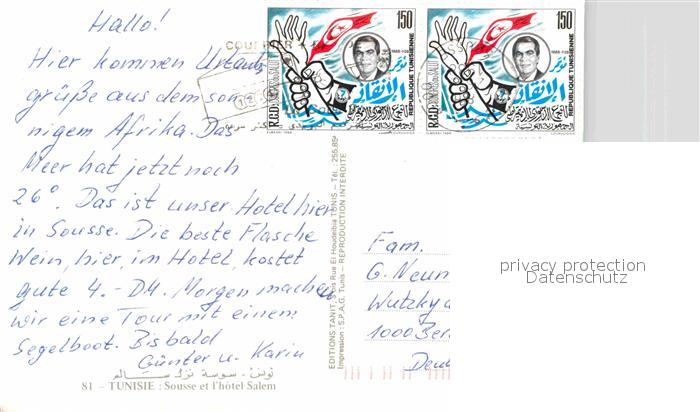 Hallo!
Hier kommen Urlaubs
grüße aus dem son
nigem Afrika. Das
Meer hat jetzt noch
26°. Das ist unser Hotel hier
in Sousse. Die beste Flasche
Wein, hier, im Hotel, kostet
gute 4.- DM. Morgen machen
wir eine Tour mit einem
Segelboot. Bis bald
Günter u. Karin
تونس - سوسة نزل سالم
81 – TUNISIE : Sousse et l'hôtel Salem
EDITIONS TANIT, 3 bis Rue El Houdeibia TUNIS – Tél. : 255.85
Impression : S.P.A.G. Tunis – REPRODUCTION INTERDITE
150
REPUBLIQUE TUNISIENNE
الجمهورية التونسية
R.C.D
150
REPUBLIQUE TUNISIENNE
الجمهورية التونسية
R.C.D
Fam.
G. Neum
Wutzky
1000 Ber
Deut
privacy protection
Datenschutz